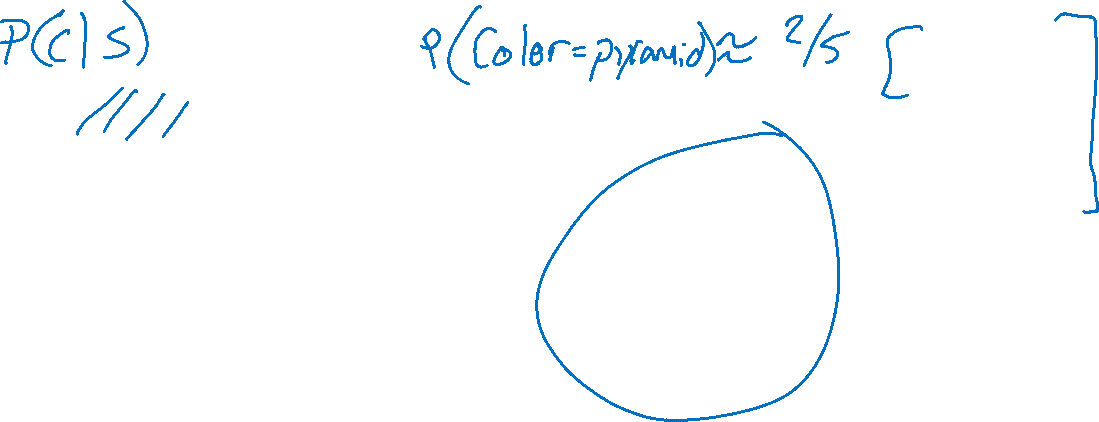 P(C|S)
P(Color=pyramid)≈ 2/5 [ ]
////